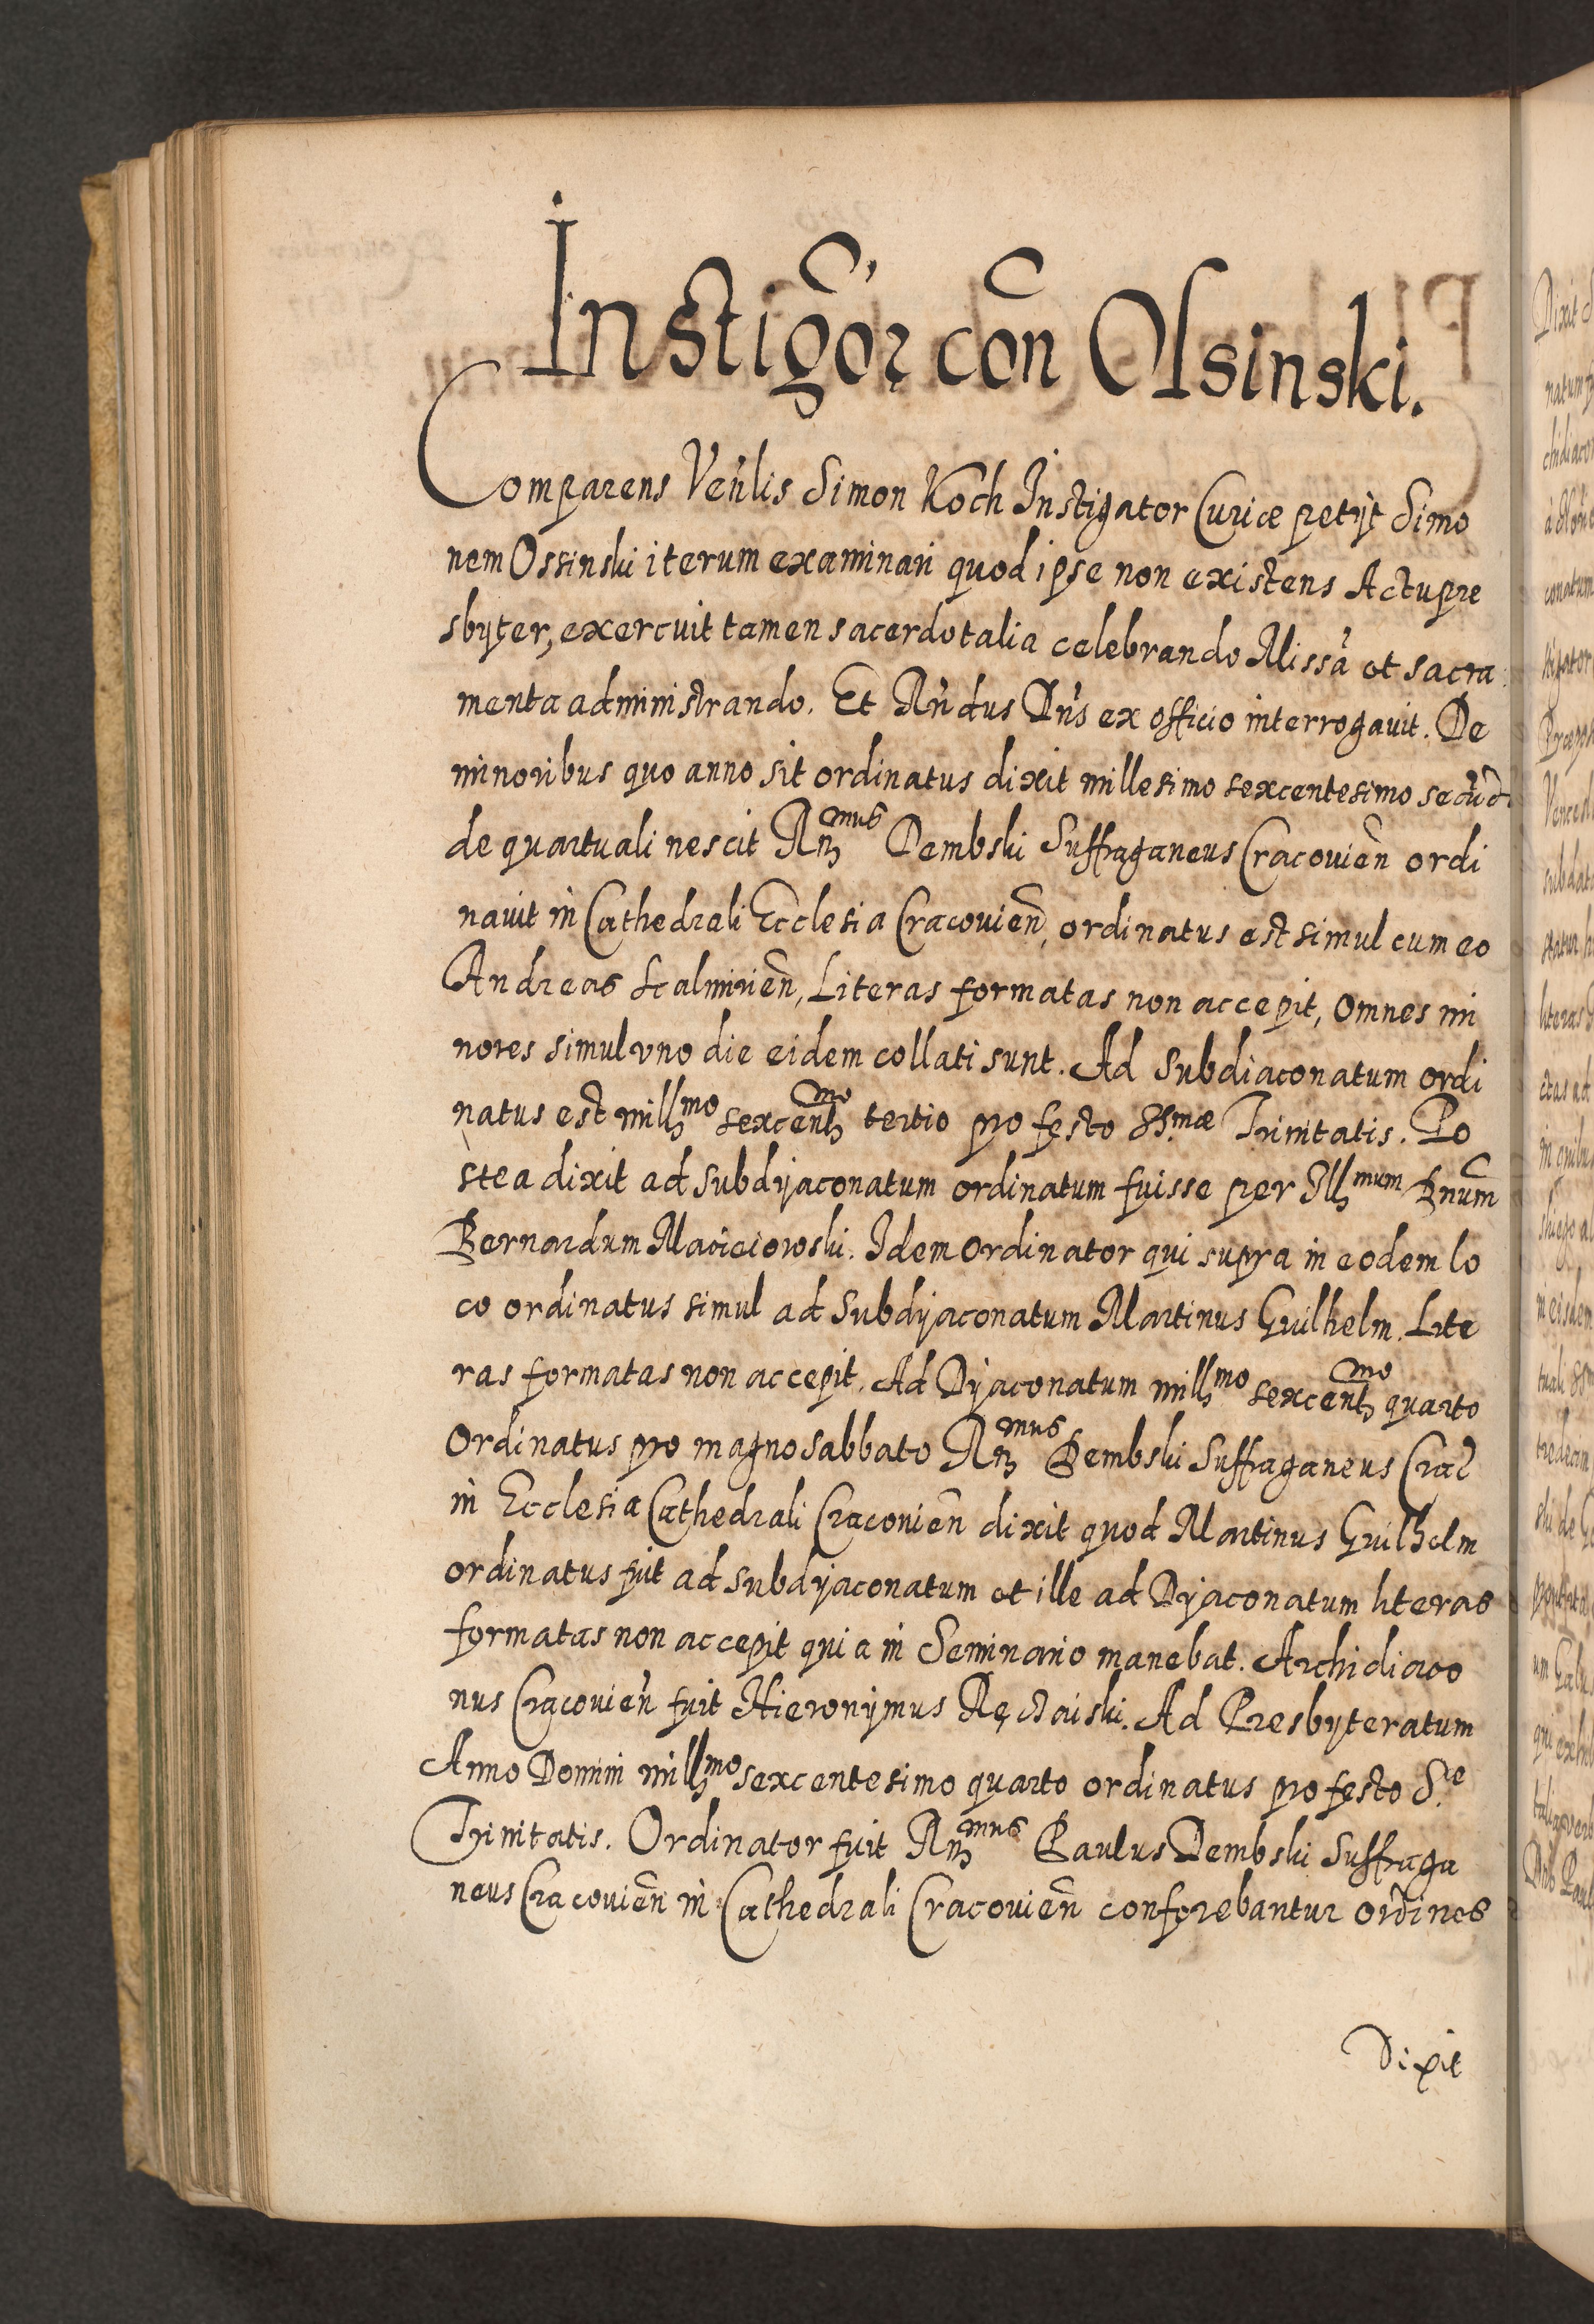 Instigor con Ossinski.
Comparens Venlis Simon Koch Instigator Curiæ petijt Simo
nem Ossinski iterum examinari quod ipse non existens Actu pre
sbyter, exercuit tamen sacerdotalia celebrando Missa et sacra
menta administrando. Et Rndus Dns ex officio interrogauit. De
minoribus quo anno sit ordinatus dixit millesimo sexcentesimo secudo
de quartuali nescit Rmus Dembski Suffraganeus Cracouien ordi
nauit in Cathedrali Ecclesia Cracouien, ordinatus est simul cum eo
Andreas Scalmirien, Literas formatas non accepit, Omnes mi
nores simul vno die eidem collati sunt. Ad Subdiaconatum ordi
natus est millmo sexcentmo tertio pro festo SSmæ Trinitatis. Po
stea dixit ad subdyaconatum ordinatum fuisse per Illmum Dnum
Bernardum Macieiowski. Idem ordinator qui supra in eodem lo
co ordinatus simul ad Subdyaconatum Martinus Guilhelm. Lite
ras formatas non accepit. Ad Dyaconatum millmo sexcentmo quarto
Ordinatus pro magno sabbato Rmus Dembski Suffraganeus Crac
in Ecclesia Cathedrali Cracouien dixit quod Martinus Guilhelm
ordinatus fuit ad subdyaconatum et ille ad Dyaconatum literas
formatas non accepit quia in Seminario manebat. Archidiaco
nus Cracouien fuit Hieronymus . Ad Presbyteratum
Anno Domini millmo sexcentesimo quarto ordinatus pro festo S.e
Trinitatis. Ordinator fuit Rmus Paulus Dembski Suffraga
neus Cracouien in Cathedrali Cracouien conferebantur ordines
Dixit